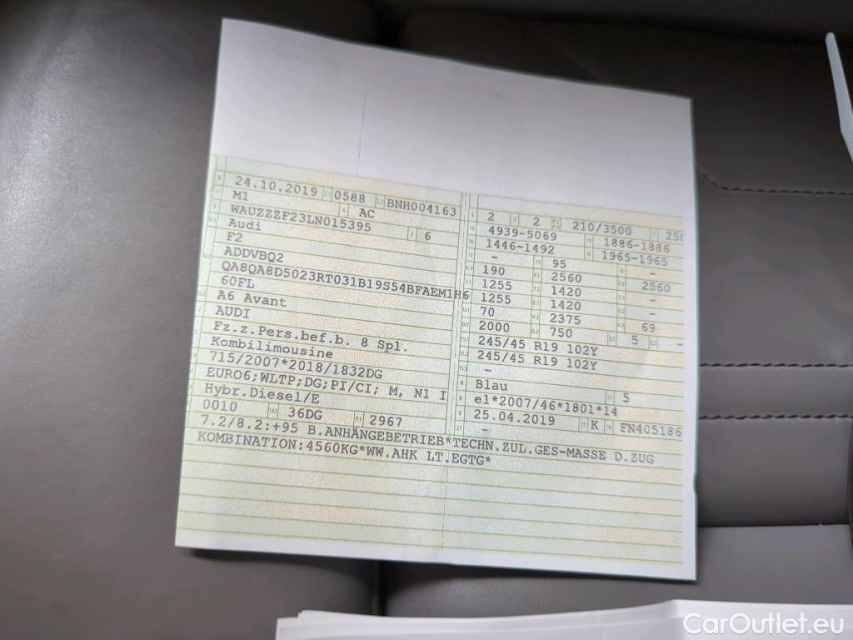 24.10.2019 0588 BNH004163
M1 AC
WAUZZZF23LN015395 6
Audi
F2
ADDVBQ2
QA8QA8D5023RT031B19S54BFAEM1H6
60FL
A6 Avant
AUDI
Fz.z.Pers.bef.b. 8 Spl.
Kombilimousine
715/2007*2018/1832DG
EURO6;WLTP;DG;PI/CI; M, N1 I
Hybr.Diesel/E
0010 36DG 2967
7.2/8.2:+95 B.ANHÄNGEBETRIEB*TECHN.ZUL.GES-MASSE D.ZUG
KOMBINATION:4560KG*WW.AHK LT.EGTG*
2 2 210/3500
4939-5069 1886-1886
1446-1492 1965-1965
- 95 -
190 2560 2560
1255 1420
1255 1420
70 2375 69
2000 750 5 -
245/45 R19 102Y
245/45 R19 102Y
-
Blau 5
e1*2007/46*1801*14
25.04.2019 K FN405186
CarOutlet.eu